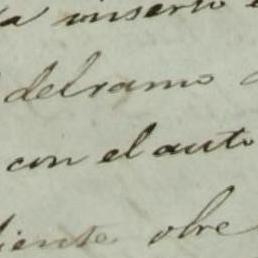 inserto
delramo
con el auto
diente obre